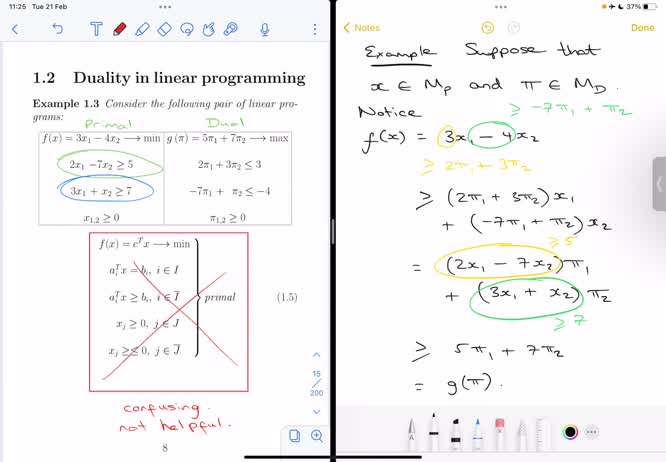 11:25 Tue 21 Feb
37%
1.2 Duality in linear programming
Example 1.3 Consider the following pair of linear pro-
grams:
Primal Dual
f(x) = 3x₁ − 4x₂ ⟶ min g (π) = 5π₁ + 7π₂ ⟶ max
2x₁ −7x₂ ≥ 5 2π₁ + 3π₂ ≤ 3
3x₁ + x₂ ≥ 7 −7π₁ + π₂ ≤ −4
x₁,₂ ≥ 0 π₁,₂ ≥ 0
f(x) = cᵀx ⟶ min
aᵢᵀx = bᵢ, i ∈ I
aᵢᵀx ≥ bᵢ, i ∈ I̅
primal
(1.5)
xⱼ ≥ 0, j ∈ J
xⱼ ≥≤ 0, j ∈ J̅
confusing.
not helpful.
8
15
200
Notes
Done
Example Suppose that
x ∈ M_P and π ∈ M_D.
Notice
≥ −7π₁ + π₂
f(x) = 3x₁ − 4x₂
≥ 2π₁ + 3π₂
≥ (2π₁ + 3π₂) x₁
+ (−7π₁ + π₂) x₂
≥ 5
= (2x₁ − 7x₂) π₁
+ (3x₁ + x₂) π₂
≥ 7
≥ 5π₁ + 7π₂
= g(π).
A